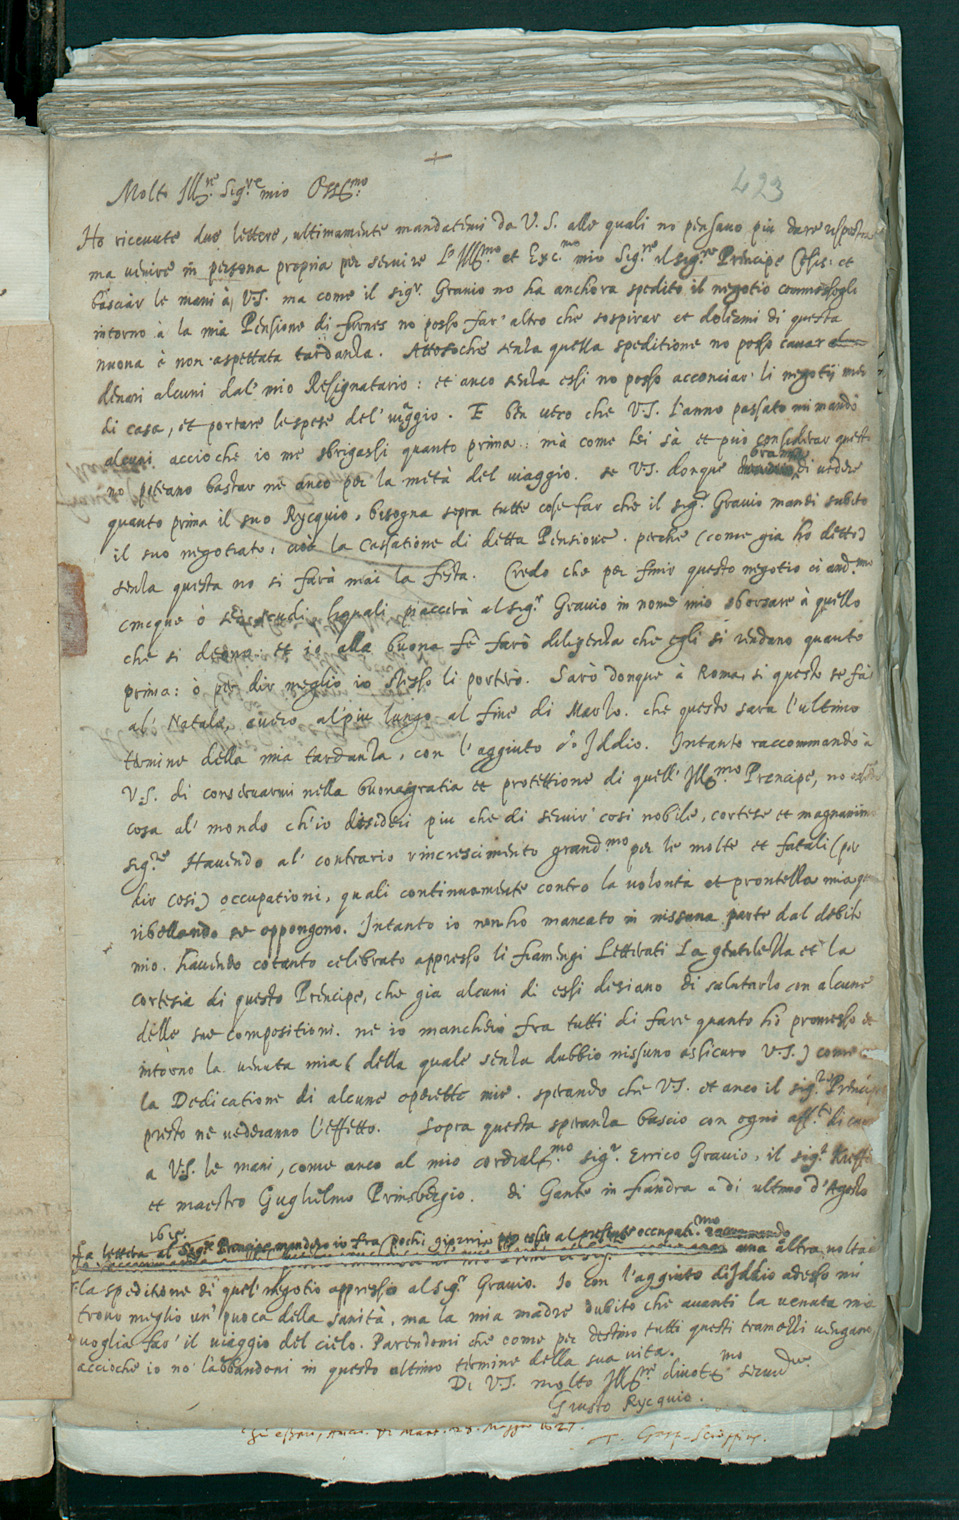 +
423
Molto Ill.re Sig.re mio Oss.mo
Ho ricevute due lettere, ultimamente mandatemi da V.S. alle quali no pensavo piu dare risposta
ma venire in persona propria per servire L'Ill.mo et Exc.mo mio Sig.re il sig.re Principe Cesis: et
basciar le mani à V.S. ma come il sig.r Gravio no ha anchora spedito il negotio commessogli
intorno à la mia Pensione di furnes no posso far' altro che sospirar et dolermi di questa
nuova è non aspettata tardanza. Attesoche senza quella speditione no posso cavar
denari alcuni dal' mio Resignatario: et anco senza essi no posso acconciar' li negotij miei
di casa, et portare le spese del' viaggio. E ben vero che V.S. l'anno passato mi mandò
alcuni accioche io me sbrigassi quanto prima: mà come lei sà et può considerar questi
no poteano bastar ne anco per la metà del viaggio. se V.S. donque brama di vedere
quanto prima il suo Rycquio, bisogna sopra tutte cose far che il sig.r Gravio mandi subito
il suo negotiato: cioè la Cassatione di detta Pensione. perche (come gia ho detto)
senza questa no si farà mai la festa. Credo che per finir questo negotio ci and.mo
cinque ò sei scudi, liquali piaccerà al sig.r Gravio in nome mio sborsare à quello
che si devono. et io alla buona fè farò diligenza che egli si rendano quanto
prima: ò per dir meglio io stesso li porterò. Sarò donque à Roma, si questo se fà
al' Natale, overo al' piu lungo al fine di Marzo. che questo sara l'ultimo
termine della mia tardanza, con l'aggiuto d'Iddio. Intanto raccommando à
V.S. di conservarmi nella buona gratia et protettione di quell' Ill.mo Prencipe, no
cosa al' mondo ch'io desideri piu che di servir' cosi nobile, cortese et magnanimo
sig.re Havendo al' contrario rincrescimento grand.mo per le molte et fatali (per
dir cosi) occupationi, quali continuamente contro la volontà et prontezza mia
ribellando se oppongono. Intanto io non ho mancato in nissuna parte dal debito
mio. havendo cotanto celebrato appresso li fiamengi Letterati La gentilezza et la
cortesia di questo Principe, che gia alcuni di essi desiano di salutarlo con alcune
delle sue compositioni. ne io mancherò fra tutti di fare quanto hò promesso et
intorno la venuta mia (della quale senza dubbio nissuno assicuro V.S.) come
la Dedicatione di alcune operette mie. sperando che V.S. et anco il sig.re Principe
presto ne vedranno l'effetto. Sopra questa speranza bascio con ogni aff.to di cuore
a V.S. le mani, come anco al mio cordial.mo sig.r Errico Gravio, il sig.r
et maestro Guglielmo Prinsbergio. Di Gante in fiandra a di ultimo d'Agosto
1615.
La lettera al Sig.re Principe manderò io fra pochi giorni per esser al presente occupati.mo raccommando
una altra volta
la speditione di quel' negotio appresso al sig.r Gravio. Io con l'aggiuto di Iddio adesso mi
trovo meglio un' puoco della sanità, ma la mia madre dubito che avanti la venuta mia
voglia far' il viaggio del cielo. Parendomi che come per destino tutti questi tramezzi vengano,
accioche io no l'abbandoni in questo ultimo termine della sua vita.
Di V.S. molto Ill.re divot.mo servid.re
Giusto Rycquio.